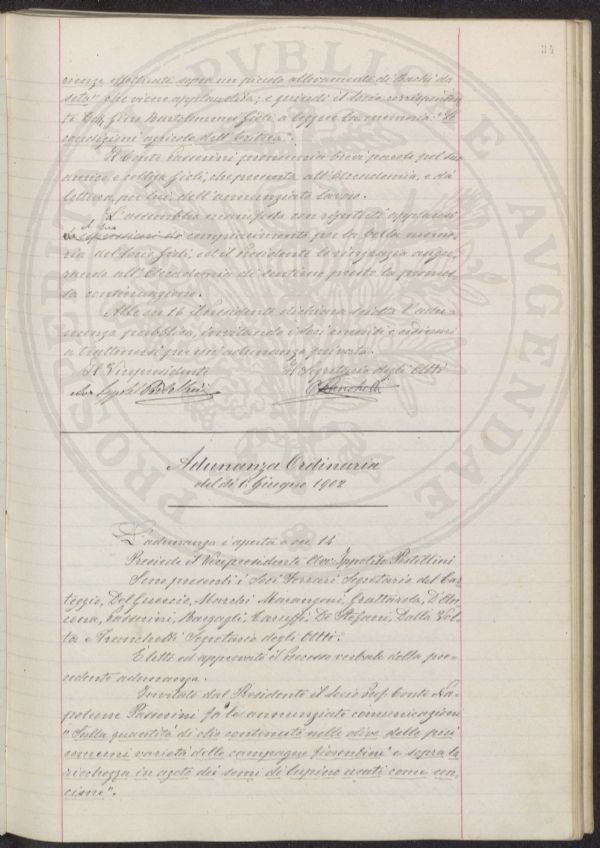 34
rienze effettuate sopra un piccolo allevamento di bachi da
seta" che viene applaudita; e quindi il Socio corrisponden
te Cav. Gino Bartolommei Gioli a leggere la memoria "Le
condizioni agricole dell'Eritrea".
Il Conte Passerini pronunzia brevi parole sul suo
amico e collega Gioli, che presenta all'Accademia, e dà
lettura, per lui dell'annunziato lavoro.
L'assemblea manifesta con ripetuti applausi
il suo
compiacimento per la bella memo-
ria del Socio Gioli, ed il Presidente lo ringrazia augu-
rando all'Accademia di sentirne presto la promes-
sa continuazione.
Alle ore 16 il Presidente dichiara sciolta l'adu-
nanza pubblica, invitando i Soci emeriti e ordinari
a trattenersi per un'adunanza privata.
Il Vicepresidente Il Segretario degli Atti
Ippolito Pestellini Franchetti
Adunanza Ordinaria
del dì 1 Giugno 1902
L'adunanza è aperta a ore 14
Presiede il Vicepresidente Avv. Ippolito Pestellini
Sono presenti i Soci Ferrari Segretario del Car-
teggio, Del Guercio, Marchi, Marangoni, Grattarola, D'An-
cona, Passerini, Bargagli, Caruffi, De Stefani, Dalla Vol-
ta e Franchetti Segretario degli Atti.
È letto ed approvato il processo verbale della pre-
cedente adunanza.
Invitato dal Presidente il socio Prof. Conte Na-
poleone Passerini fa la annunziata comunicazione
"Sulla quantità di olio contenuta nelle olive delle più
comuni varietà delle campagne fiorentine e sopra la
ricchezza in azoto dei semi di lupino usati come con-
cime".
PROSPERITATI PVBLICAE AVGENDAE